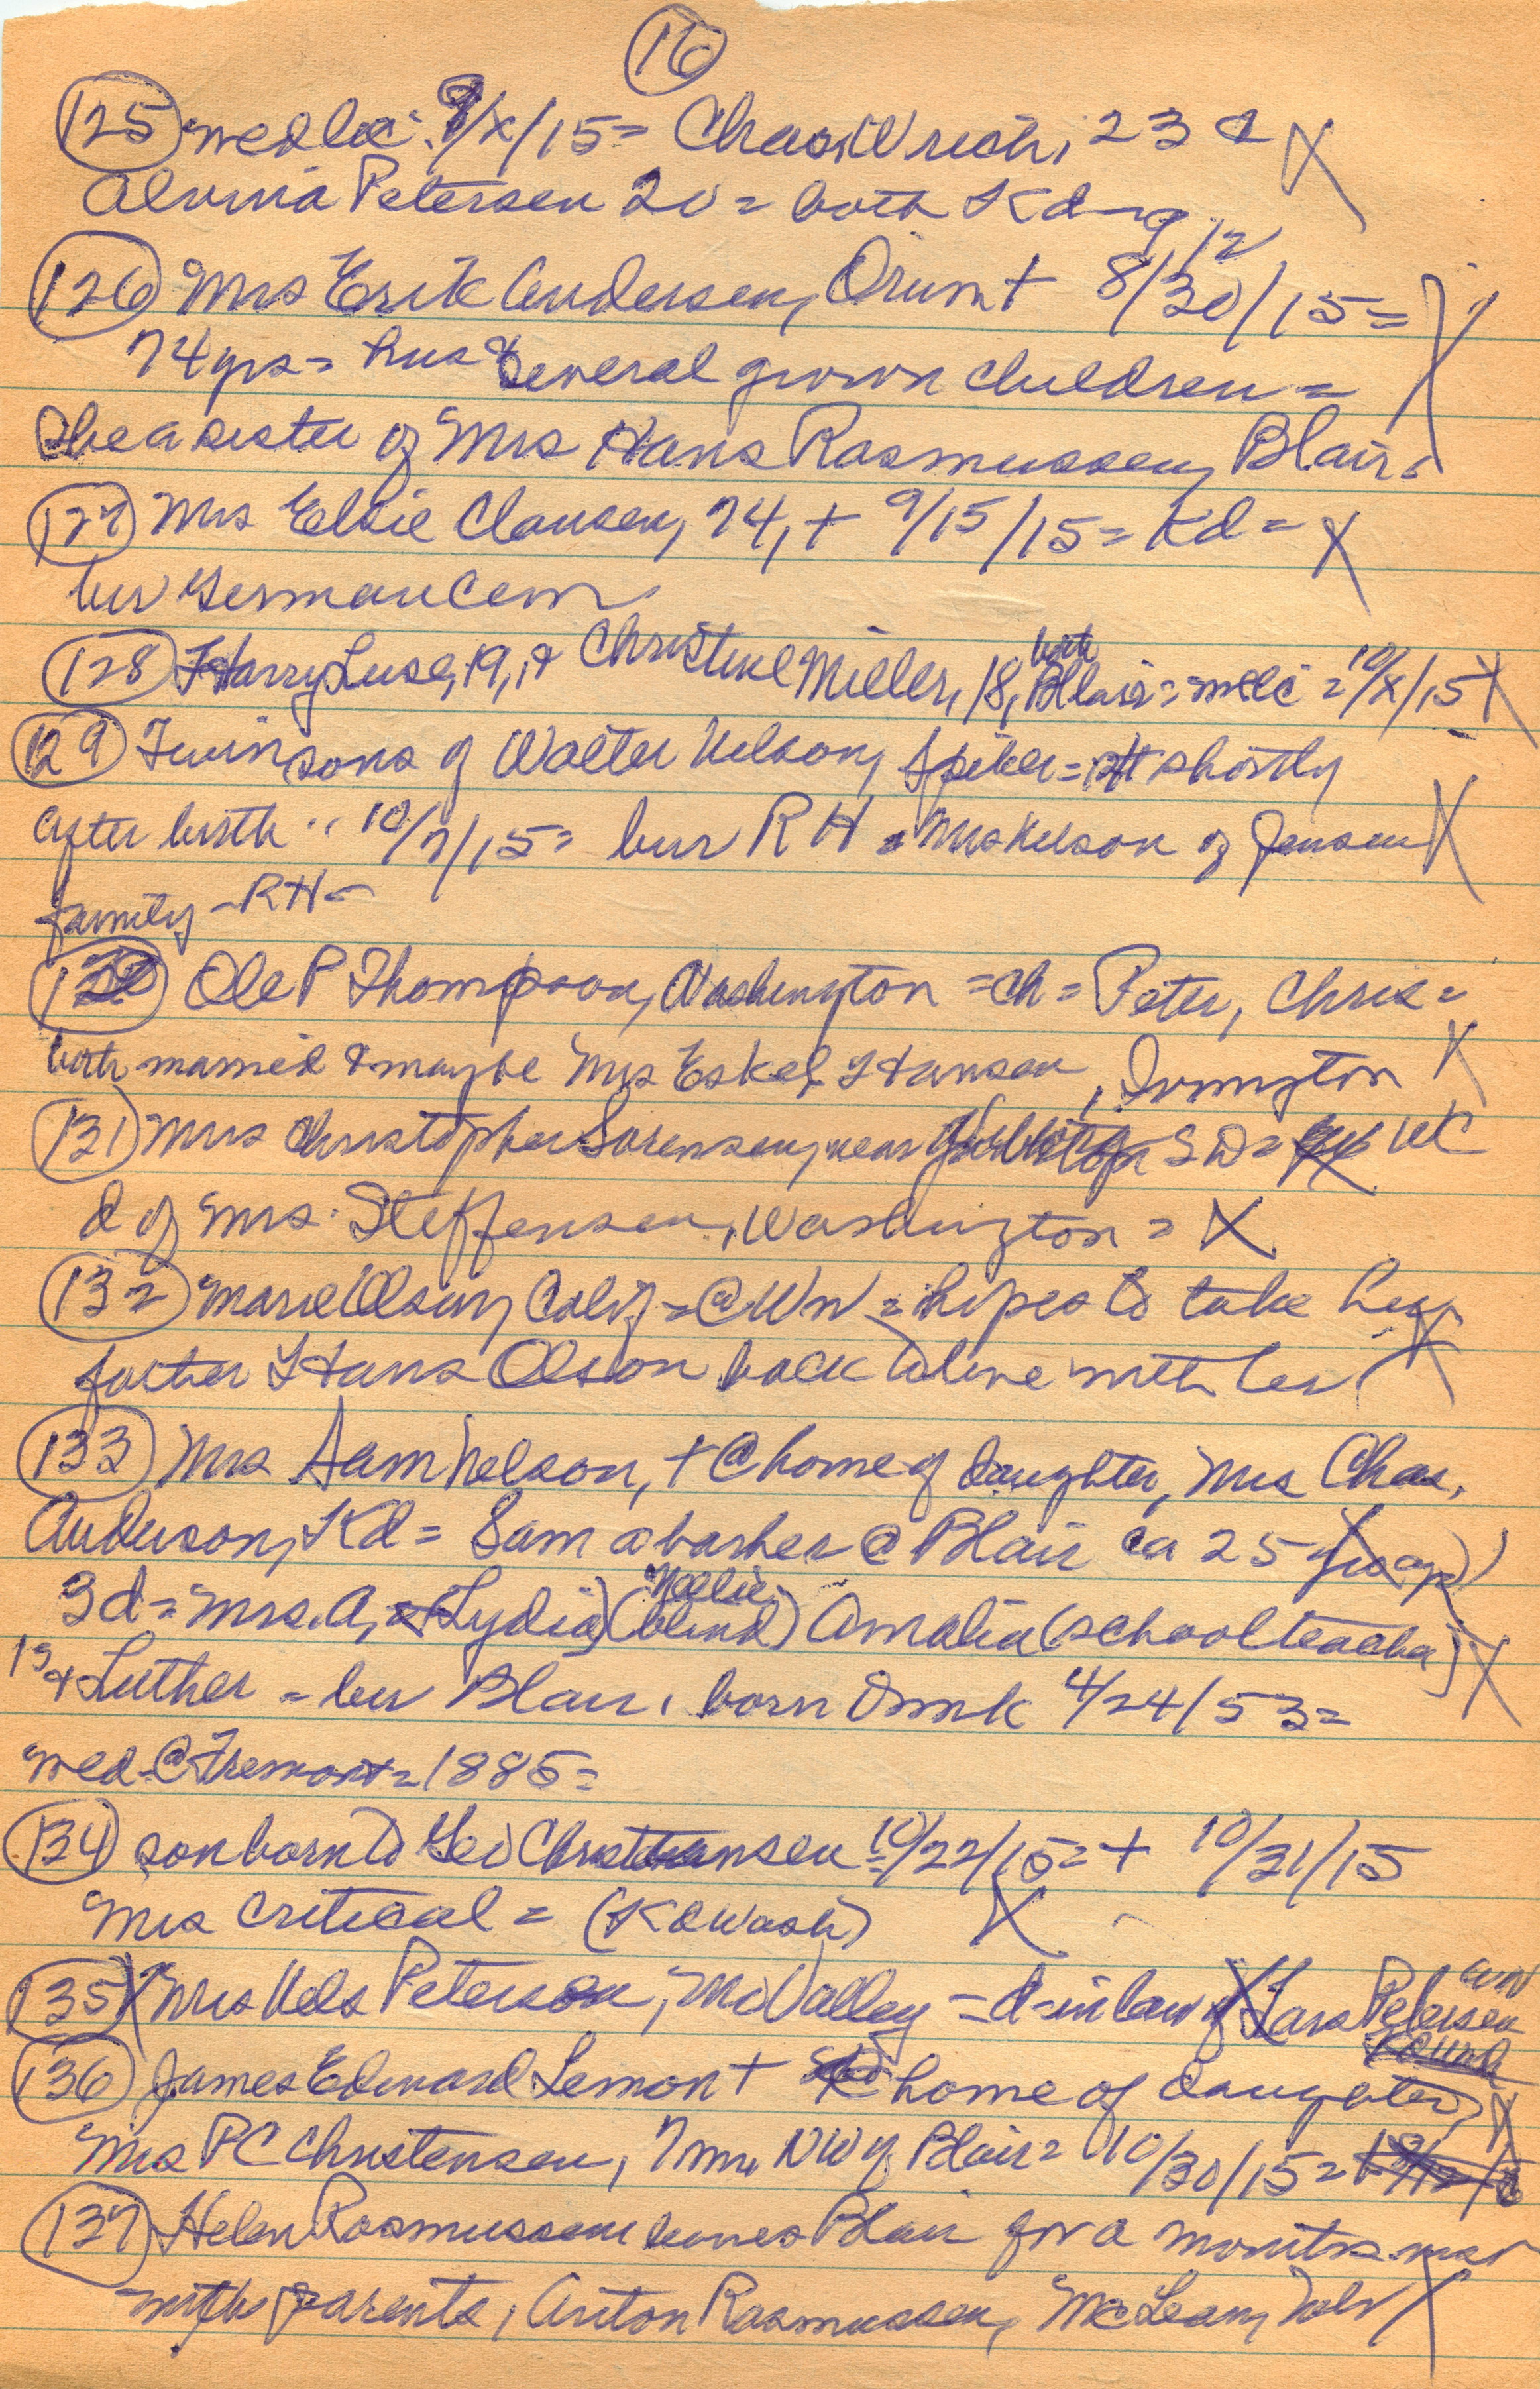 16
125 wed lic: 9/x/15 = Chas Wrich, 23 &
Alvina Petersen 20 = both Kd
126 Mrs Erik Andersen, Orum + 8/30/15 =
74 yrs = hus & several grown children =
She a sister of Mrs Hans Rasmussen, Blair.
127 Mrs Elsie Clausen, 74, + 9/15/15 = Kd =
bur German Cem
128 Harry Luse, 19, & Christine Miller, 18, both Blair = mlic = 10/x/15
129 Twin sons of Walter Nelson, Spiker = + shortly
after birth .. 10/7/15 = bur RH = Mrs Nelson of Jensen
family - RH =
130 Ole P Thompson, Washington = ch = Peter, Chris =
both married & maybe Mrs Eskel Hansen, Irvington
131 Mrs Christopher Sorensen, near SD = VC
d of Mrs. Steffensen, Washington =
132 Marie Olson, Calif = @ WN = hopes to take her
father Hans Olson back to live with her
133 Mrs Sam Nelson, + @ home of daughter, Mrs Chas.
Anderson, Kd = Sam a barber @ Blair ca 25 yrs ago
3d = Mrs. A, Lydia (blind) Nellie Amalia (school teacher)
1s & Luther = bur Blair, born Dnmk 4/24/53 =
wed @ Fremont = 1885 =
134 son born to Geo Christensen = 10/22/15 = + 10/31/15
Mrs critical = (Kd Wash)
135 Mrs Nels Peterson, Mo Valley = d-in law of Lars Petersen WN
136 James Edward Lemon + home of daughter,
Mrs PC Christensen, 7 m. NW of Blair = 10/30/15 =
137 Helen Rasmussen leaves Blair for a months
with parents, Anton Rasmussen, McLean, Nebr